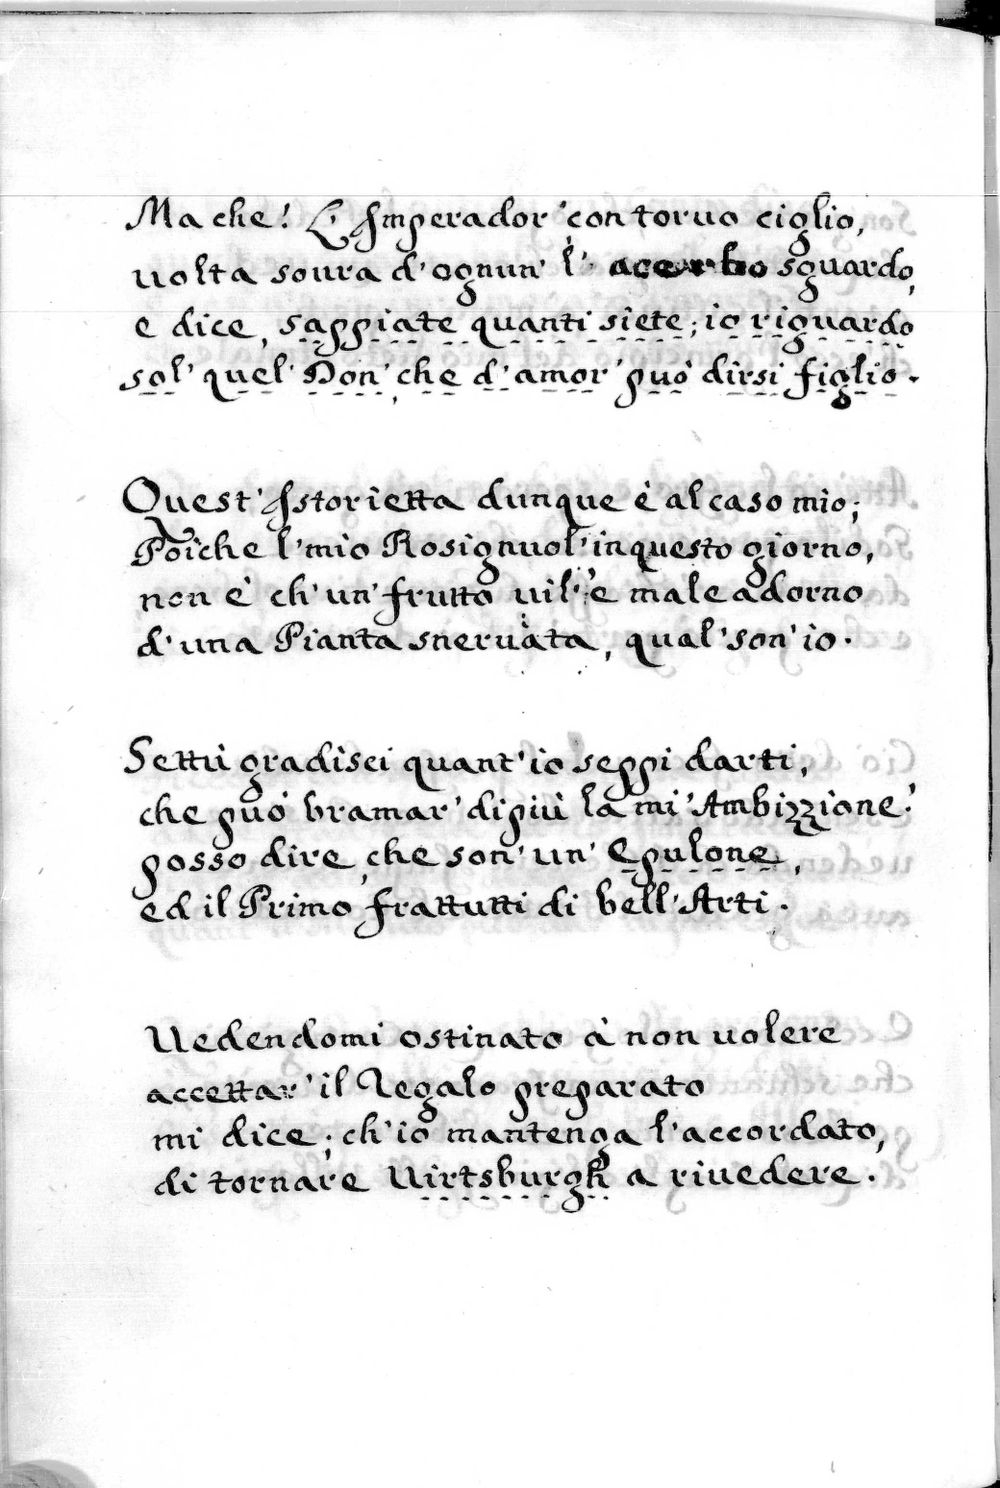 Ma che! L'Imperador' con toruo ciglio,
uolta soura d'ognun' l'acerbo sguardo,
e dice, sappiate quanti siete; io riguardo
sol' quel' Don', che d'amor' può dirsi figlio.
Quest' Istorietta dunque è al caso mio;
Poiche l'mio Rosignuol' in questo giorno,
non è ch'un' frutto uil' è male adorno
d'una Pianta sneruata, qual' son' io.
Settù gradisci quant'io seppi darti,
che può bramar' di più la mi' Ambizzione?
posso dire, che son' un' Epulone,
ed il Primo frattutti di bell'Arti.
Uedendomi ostinato à non uolere
accettar' il Regalo preparato
mi dice; ch'io mantenga l'accordato,
di tornare Uirtsburgk a riuedere.